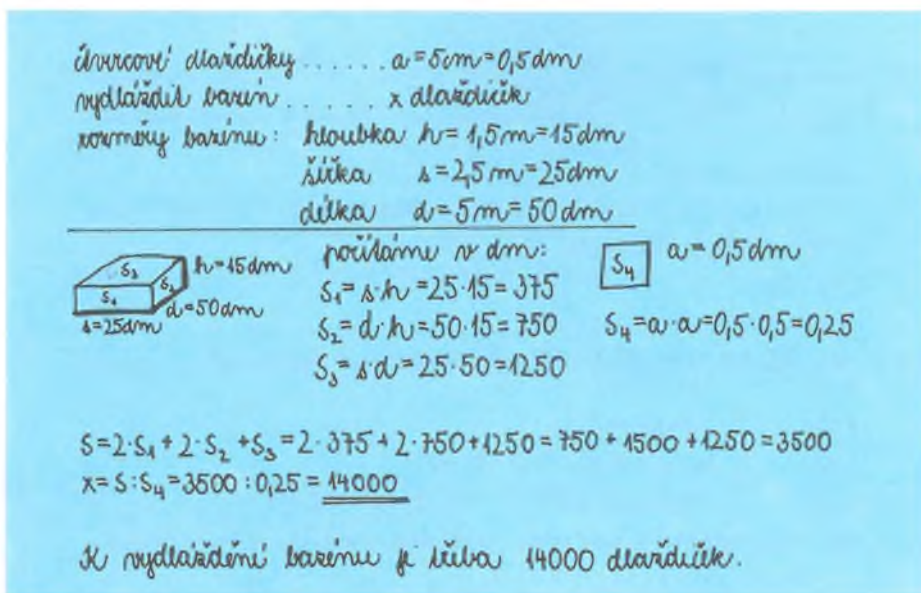 čtvercové dlaždičky ...... a=5cm=0,5dm
vydláždit bazén ..... x dlaždiček
rozměry bazénu: hloubka h=1,5m=15dm
šířka s=2,5m=25dm
délka d=5m=50dm
počítáme v dm:
S₃ h=15dm
S₁ S₂ d=50dm
s=25dm
S₁=s·h=25·15=375
S₂=d·h=50·15=750
S₃=s·d=25·50=1250
S₄ a=0,5dm
S₄=a·a=0,5·0,5=0,25
S=2·S₁+2·S₂+S₃=2·375+2·750+1250=750+1500+1250=3500
x=S:S₄=3500:0,25=14000
K vydláždění bazénu je třeba 14000 dlaždiček.